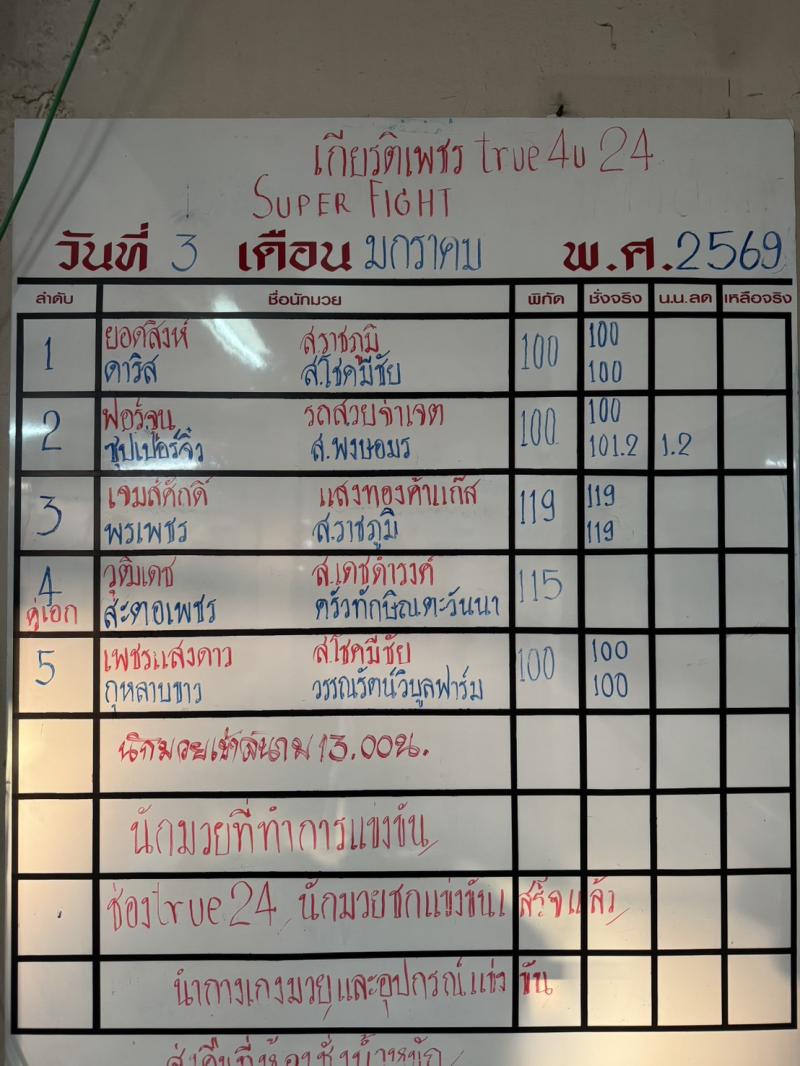 เกียรติเพชร true4u 24
SUPER FIGHT
วันที่ 3 เดือน มกราคม พ.ศ. 2569
ลำดับ ชื่อนักมวย พิกัด ชั่งจริง น.น.ลด เหลือจริง
1 ยอดสิงห์ ส.ราชภูมิ 100 100
ดาวิส ส.โชคมีชัย 100
2 ฟอร์จูน รถสวยจ่าเจต 100 100
ซุปเปอร์จิ๋ว ส.พงษ์อมร 101.2 1.2
3 เจมส์ศักดิ์ แสงทองค้าแก๊ส 119 119
พรเพชร ส.ราชภูมิ 119
4 วุฒิเดช ส.เดชดำรงค์ 115
คู่เอก สะตอเพชร ครัวทักษิณตะวันนา
5 เพชรแสงดาว ส.โชคมีชัย 100 100
กุหลาบขาว วรรณรัตน์วิบูลฟาร์ม 100
นักมวยเข้าสนาม 13.00น.
นักมวยที่ทำการแข่งขัน
ช่องtrue24 นักมวยชกแข่งขันเสร็จแล้ว
นำกางเกงมวยและอุปกรณ์แข่งขัน
ส่งคืนที่ห้องชั่งน้ำหนัก